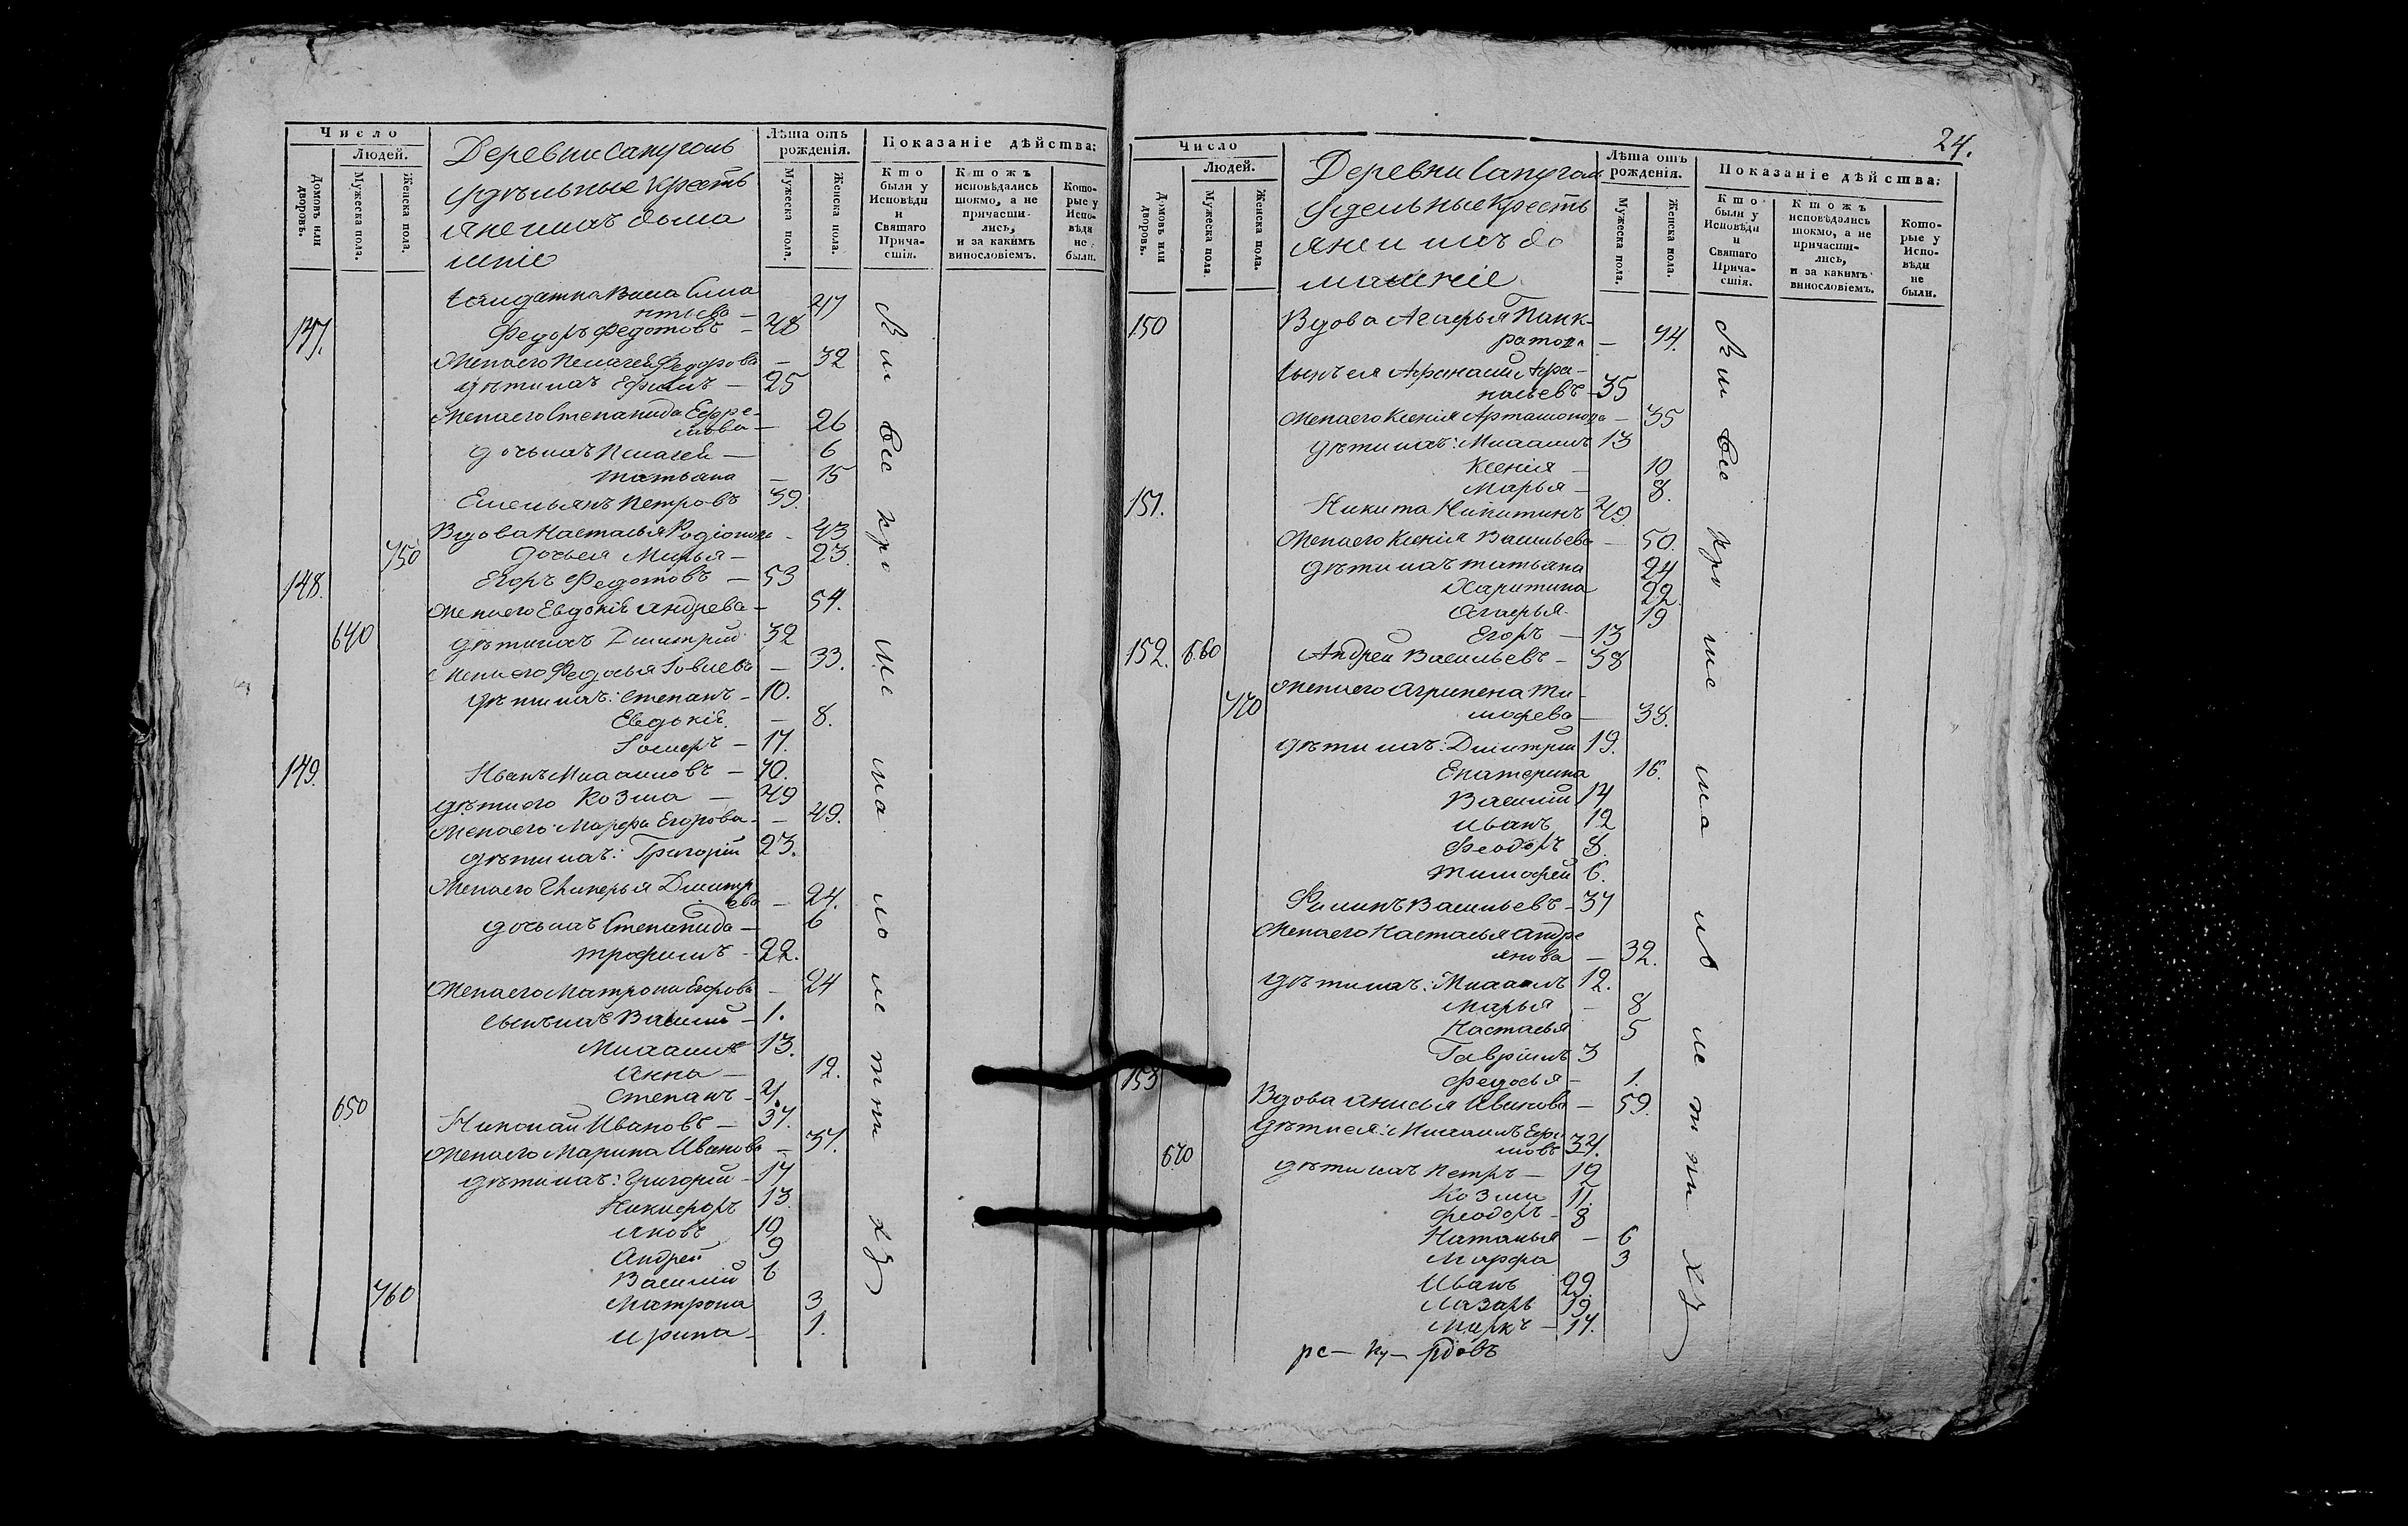 Число
Людей.
Домовъ или дворовъ.
Мужеска пола.
Женска пола.
Деревни Сапуголь
Удѣльные Кресть
яне и ихъ дома
шніе
Лѣта отъ рожденія.
Мужеска пола.
Женска пола.
Показаніе дѣйства:
Кто были у Исповѣди и Святаго Причастія.
Ктожъ исповѣдались токмо, а не причастились, и за какимъ винословіемъ.
Которые у Исповѣди не были.
147. Федоръ Федотовъ – 48
Жена его Пелагея Федорова – 32
дѣти ихъ Ефимъ – 25
Жена его Степанида Ефре-
мова – 26
дочь ихъ Пелагея – 6
Татьяна – 15
Емельянъ Петровъ 39.
Вдова Настасья Родіонова – 43
750 дочь ея Марья – 23.
148. Егоръ Федотовъ – 53
Жена его Евдокія Андрева – 54.
640 дѣти ихъ Дмитрій 32
Жена его Федосья – 33.
дѣти ихъ: Степанъ – 10.
Евдокія – 8.
17.
149. Иванъ Михаиловъ – 70.
дѣти его Козма – 49
Жена его Марфа Егорова – 49.
дѣти ихъ: Григорій 23.
Жена его Гликерья Дмитр
ева – 24.
дочь ихъ Степанида – 6
Трофимъ – 22.
Жена его Матрона Егорова – 24
сынъ ихъ Василій – 1.
Михаилъ 13.
Анна – 12.
Степанъ –
650 Николай Ивановъ – 37.
Жена его Марина Иванова – 37.
дѣти ихъ: Григорій – 17
Никифоръ 13.
Яковъ 10
Андрей 9
Василій 6
760 Матрона 3
Ирина – 1.
24.
Число
Людей.
Домовъ или дворовъ.
Мужеска пола.
Женска пола.
Деревни Сапуголь
Удельные Кресть
яне и ихъ до
машніе
Лѣта отъ рожденія.
Мужеска пола.
Женска пола.
Показаніе дѣйства:
Кто были у Исповѣди и Святаго Причастія.
Ктожъ исповѣдались токмо, а не причастились, и за какимъ винословіемъ.
Которые у Исповѣди не были.
150 Вдова Агафья Панк-
ратова – 74.
Сынъ ея Афанасій Афа-
насьевъ – 35
Жена его Ксенія Артамонова – 35
дѣти ихъ: Михаилъ 13
Ксенія – 10
Марья – 8.
151. Никита Никитинъ 49.
Жена его Ксенія Васильева – 50.
дѣти ихъ Татьяна 24
Харитина 22.
Агафья 19
Егоръ – 13
152. 660 Андрей Васильевъ – 38
Жена его Агрипена Ти-
770 мофева – 38.
дѣти ихъ: Дмитрій 19.
Екатерина 16.
Василій 14
Иванъ 12
Феодоръ 8.
Тимофей 6.
Филипъ Васильевъ – 37
Жена его Настасья Андре
янова – 32.
дѣти ихъ: Михаилъ 12.
Марья – 8
Настасья 5
Гавріилъ 3
153 Федосья – 1.
Вдова Анисья Иванова – 59.
дѣти ея: Михаилъ Ефи
мовъ 34.
670 дѣти ихъ Петръ – 12
Козма 11.
Феодоръ – 8
Наталья – 6
Марфа 3
Иванъ 22.
Лазарь 19.
Маркъ – 17.